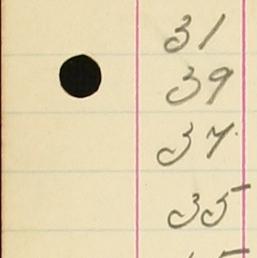 31
39
37
35